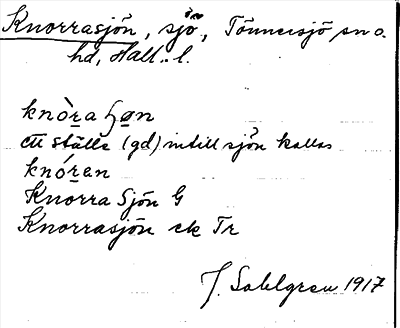 Knorrasjön, sjö, Tönnersjö sn o.
hd, Hall. l.
knòra ɧøn
ett ställe (gd) intill sjön kallas
knóren
Knorra Sjön G
Knorrasjön ek Tr
J. Sahlgren 1917